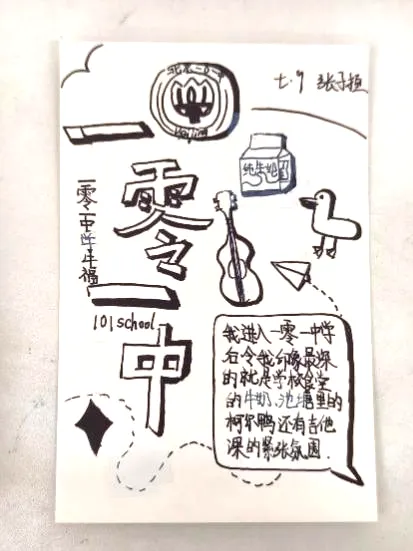 七.9 张子桓
一零一中
纯牛奶
一零一中学牛福
101 school
我进入一零一中学
后令我印像最深
的就是学校食堂
的牛奶、池塘里的
柯尔鸭还有吉他
课的紧张氛围.